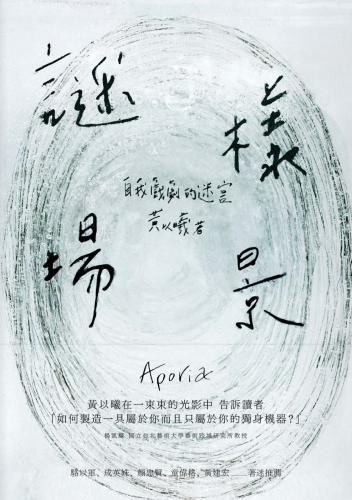 謎樣場景
自我戲劇的迷宮
黃以曦 著
Aporia
黃以曦在一束束的光影中 告訴讀者
「如何製造一具屬於你而且只屬於你的獨身機器?」
楊凱麟 國立台北藝術大學藝術跨域研究所教授
駱以軍、成英姝、顏忠賢、童偉格、黃建宏 著迷推薦